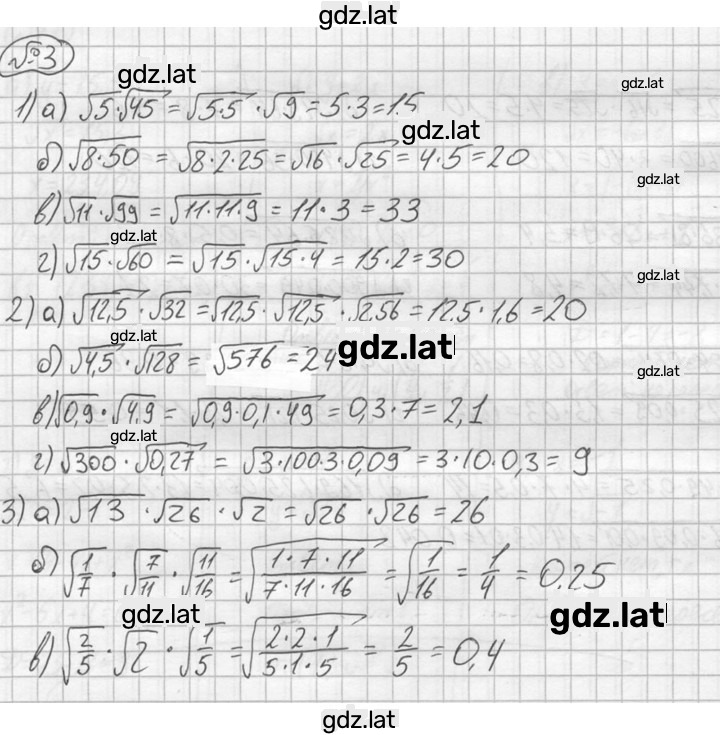 gdz.lat
№3
gdz.lat
gdz.lat
1) а) √5·√45 = √5·5 · √9 = 5·3 = 15
gdz.lat
б) √8·50 = √8·2·25 = √16 · √25 = 4·5 = 20
gdz.lat
в) √11 · √99 = √11·11·9 = 11·3 = 33
gdz.lat
г) √15 · √60 = √15 · √15·4 = 15·2 = 30
gdz.lat
2) а) √12,5 · √32 = √12,5 · √12,5 · √2.56 = 12.5·1,6 = 20
gdz.lat
б) √4,5 · √128 = √576 = 24
gdz.lat
gdz.lat
в) √0,9 · √4,9 = √0,9·0,1·49 = 0,3·7 = 2,1
gdz.lat
г) √300 · √0,27 = √3·100·3·0,09 = 3·10·0,3 = 9
3) а) √13 · √26 · √2 = √26 · √26 = 26
б) √1/7 · √7/11 · √11/16 = √1·7·11/7·11·16 = √1/16 = 1/4 = 0.25
gdz.lat
gdz.lat
в) √2/5 · √2 · √1/5 = √2·2·1/5·1·5 = 2/5 = 0,4
gdz.lat